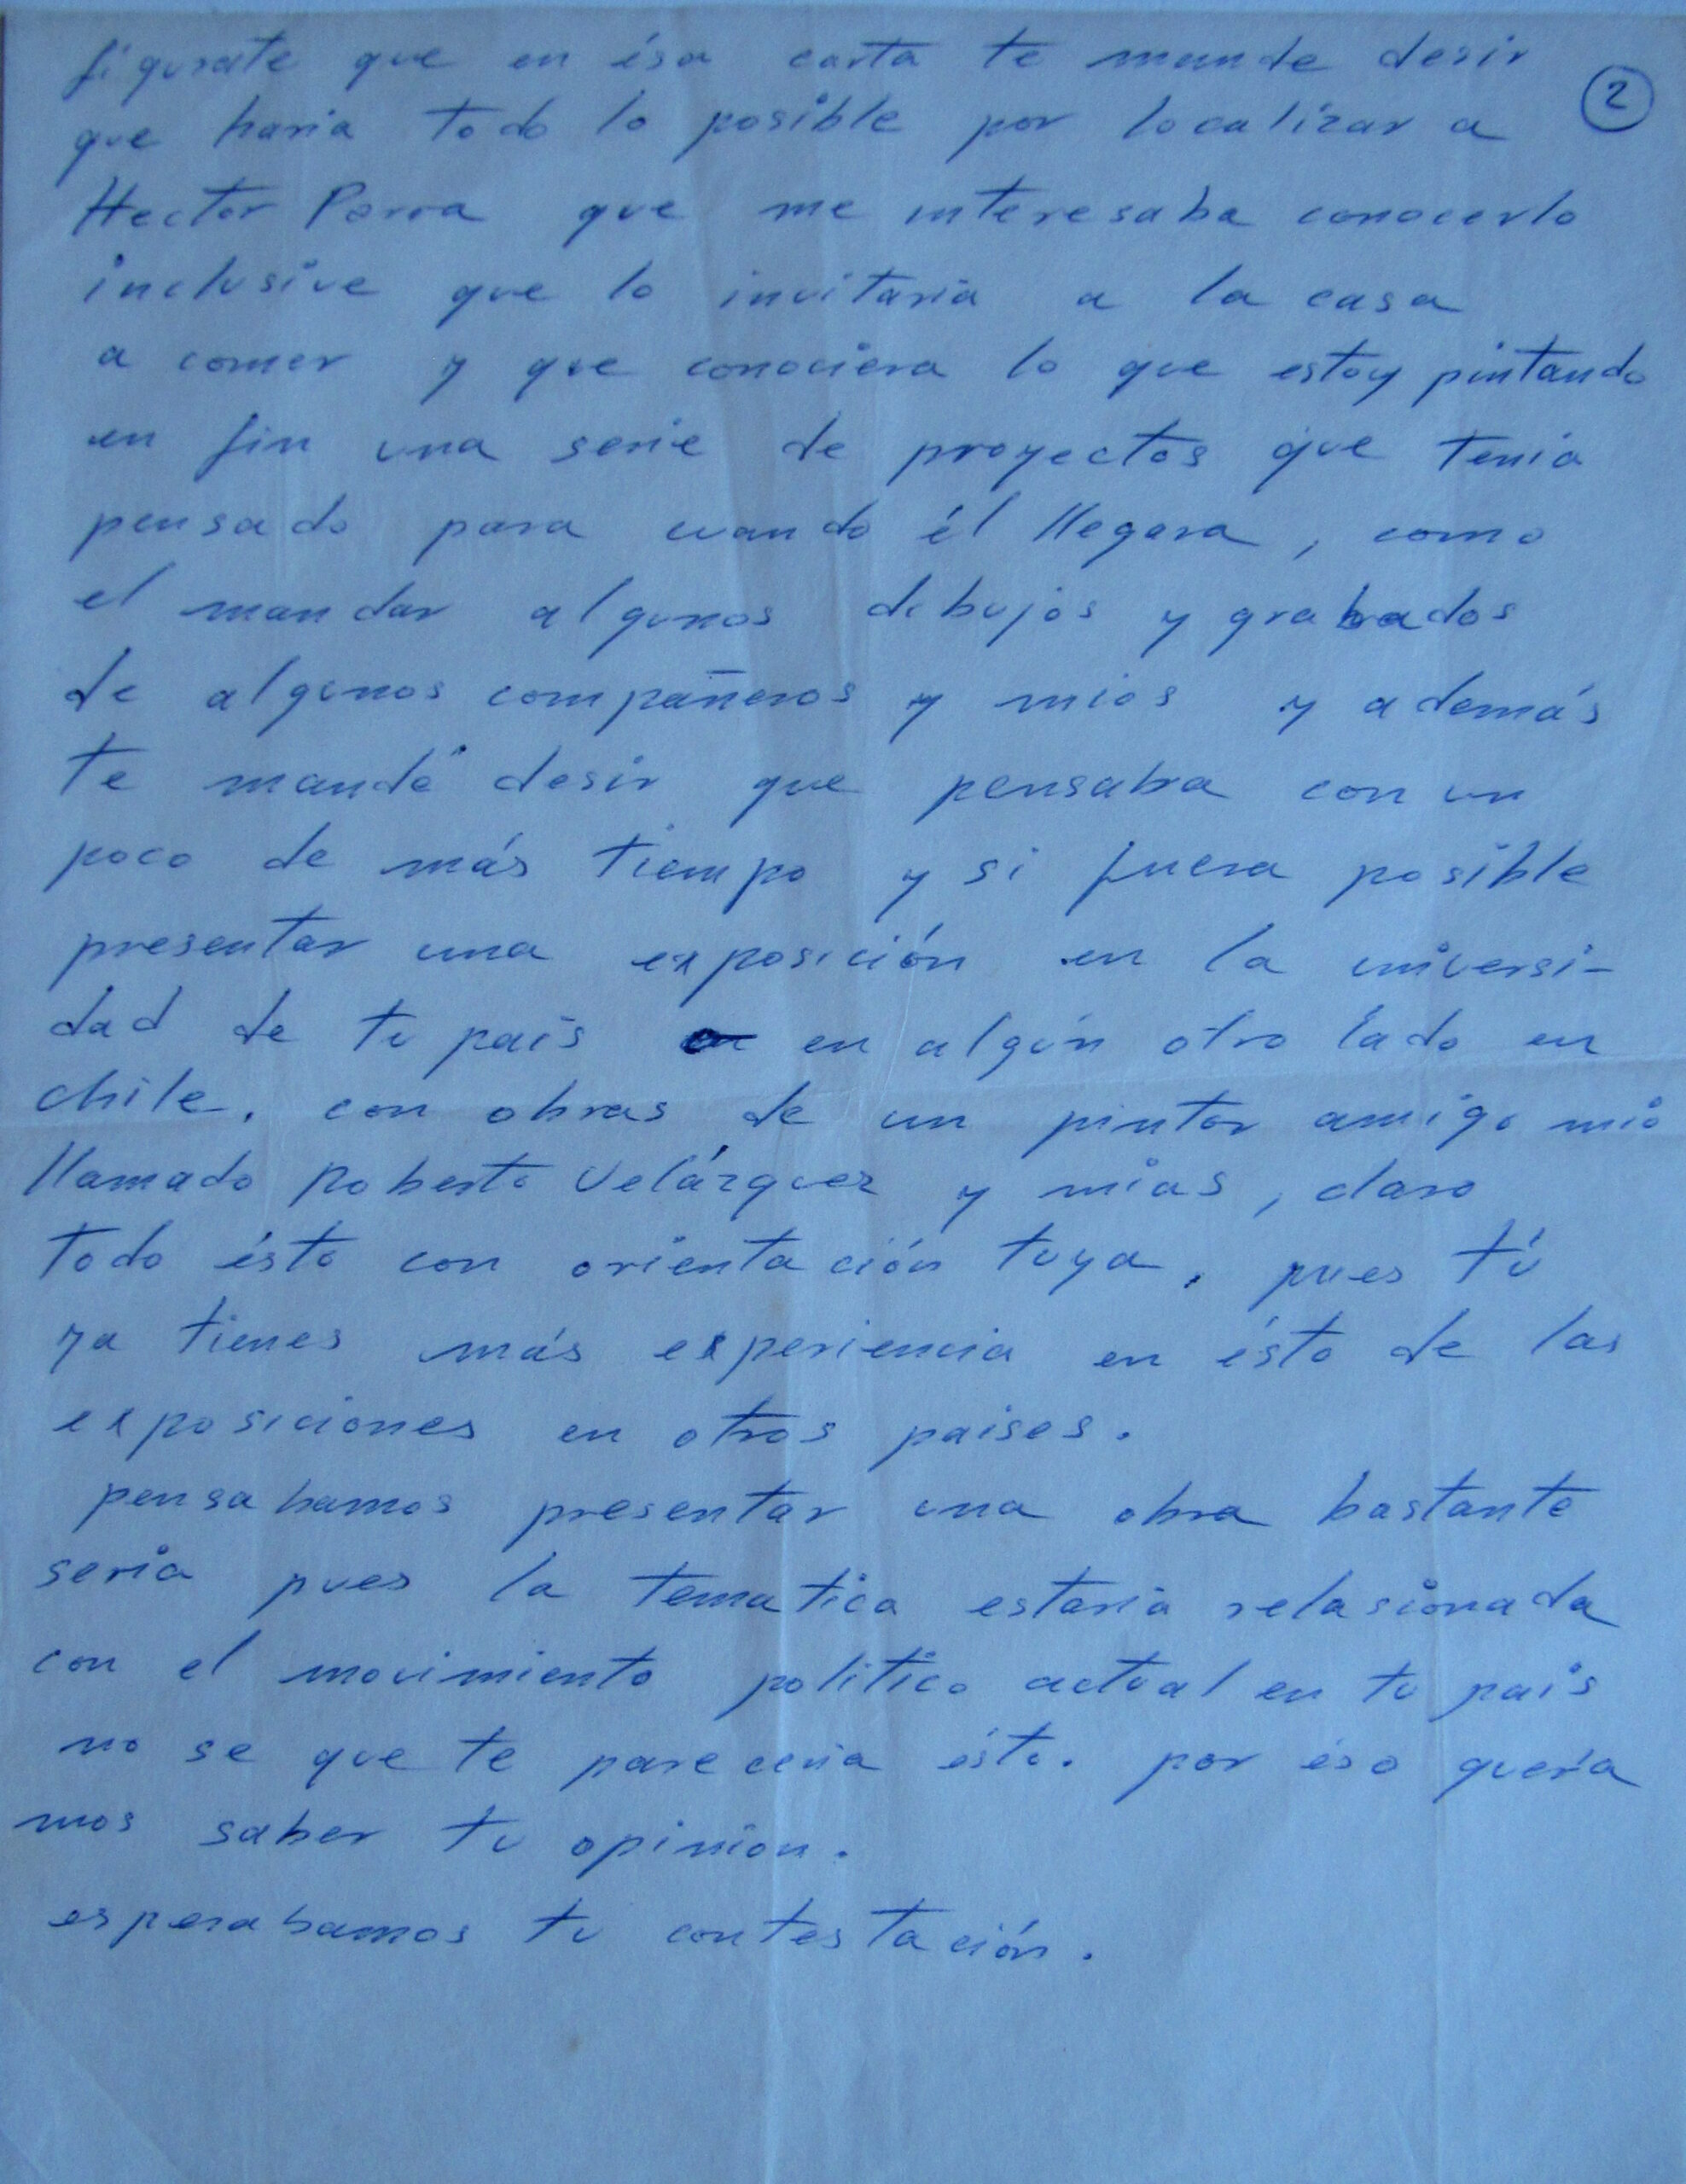 figurate que en ésa carta te mande desir
2
que haria todo lo posible por localizar a
Hector Parra que me interesaba conocerlo
inclusive que lo invitaria a la casa
a comer y que conociera lo que estoy pintando
en fin una serie de proyectos que tenia
pensado para cuando él llegara, como
el mandar algunos debujos y grabados
de algunos compañeros y mios y además
te mandé desir que pensaba con un
poco de más tiempo y si fuera posible
presentar una exposición en la universi-
dad de tu pais en algún otro lado en
chile. con obras de un pintor amigo mio
llamado Roberto Velázquez y mias, claro
todo ésto con orientación tuya, pues tú
ya tienes más experiencia en ésto de las
exposiciones en otros paises.
pensabamos presentar una obra bastante
seria pues la tematica estaria relasionada
con el movimiento politico actual en tu pais
no se que te pareceria ésto. por éso queria
mos saber tu opinion.
esperabamos tu contestación.